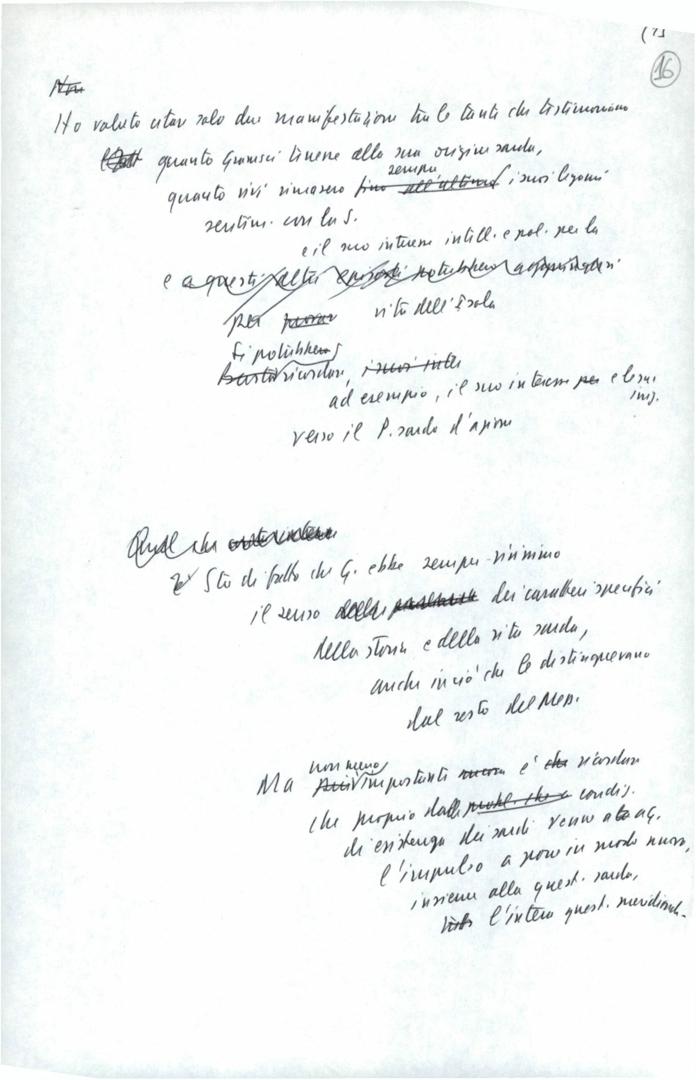 (7)
16
Non
Ho voluto citar solo due manifestazioni tra le tante che testimoniano
quanto Gramsci tenesse alla sua origine sarda,
sempre
quanto vivi rimasero fino all'ultimo i suoi legami
sentim. con la S.
e il suo interesse intell. e pol. per la
e a questi altri episodi potrebbero aggiungersi
per vita dell'Isola
Si potrebbero
Basta ricordare, i suoi
ad esempio, il suo interesse per e le sue
verso il P. sardo d'azione
Quel che
Sta di fatto che G. ebbe sempre vivissimo
il senso della dei caratteri specifici
della storia e della vita sarda,
anche in ciò che le distinguevano
dal resto del Mezz.
non meno
Ma più importante ancora è che ricordare
che proprio dalle probl. che condiz.
di esistenza dei sardi venne a G.
l'impulso a porre in modo nuovo,
insieme alla quest. sarda,
l'intera quest. meridionale.